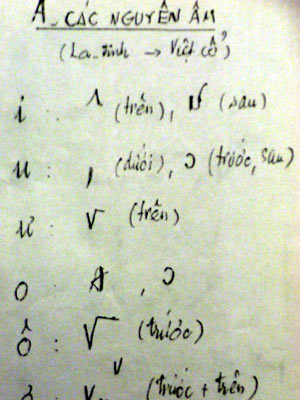 A - CÁC NGUYÊN ÂM
(La-tinh → Việt cổ)
i : (trên), (sau)
u : (dưới), (trước, sau)
ư : (trên)
o : ,
ô : (trước)
(trước + trên)